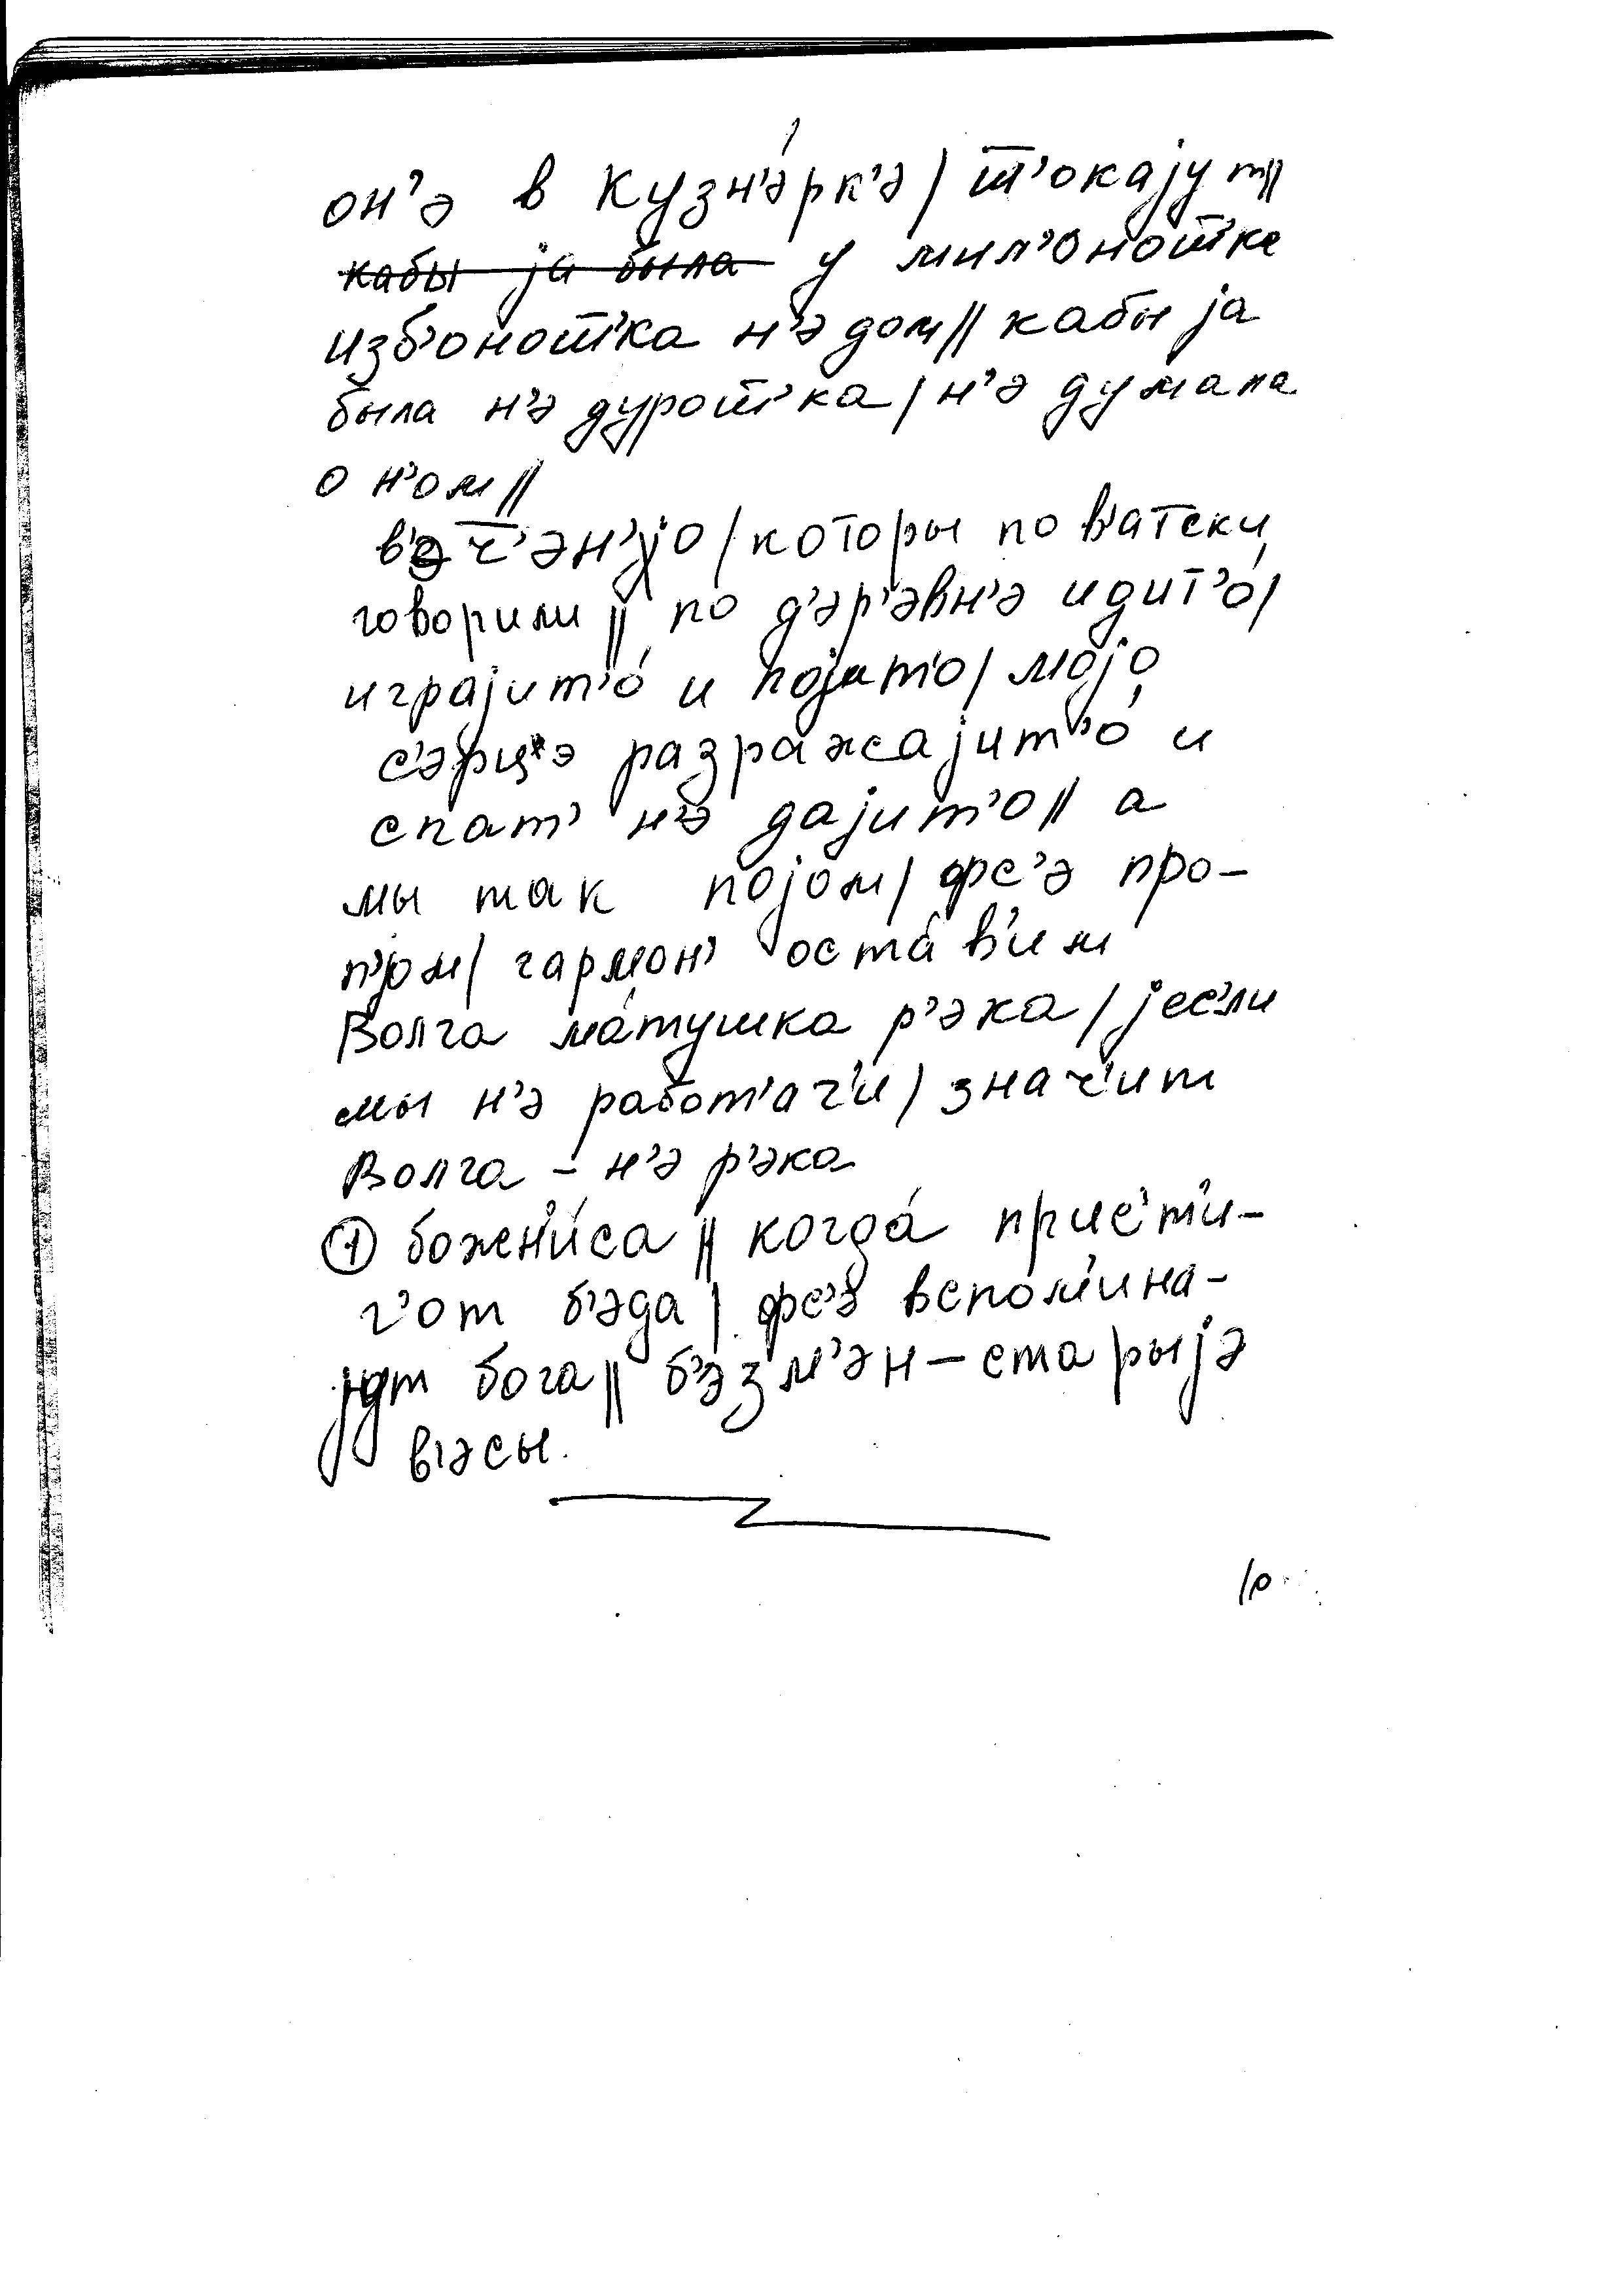 он'э в Кузн'э́рк'э / т̅'окајут //
~~кабы ја была~~ у мил'онот̅'ке
изб'онот̅'ка н'э дом // кабы ја
была н'э дурот̅'ка / н'э думала
о н'ом //
в'эч̅'эн'јо / которы по в'атски
говорили // по д'әр'әвн'ә идит'о́ /
играјит'о́ и појит'о / мојо
с'әрц'ә разражајит'о́ и
спат' н'ә дајит'о // а
мы так појом / фс'ә про-
п'јом / гармон' оста́в'им
Волга ма́тушка р'әка / јес'ли
мы н'ә работ'аг'и / знач'ит
Волга – н'ә р'әка
① божен'и́са // когда́ прис'т'и-
г'от б'әда / фс'ә вспом'ина-
јут бога // б'әзм'ән – старыјә
в'әсы.